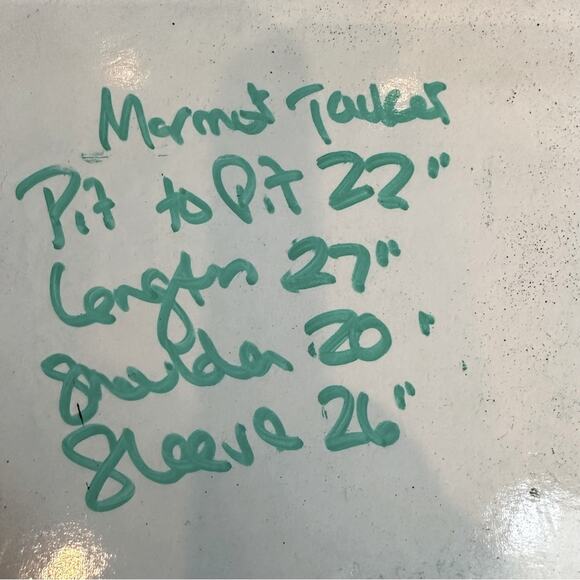 Marmot Jacket
Pit to Pit 22"
Length 27"
Shoulder 20"
Sleeve 26"